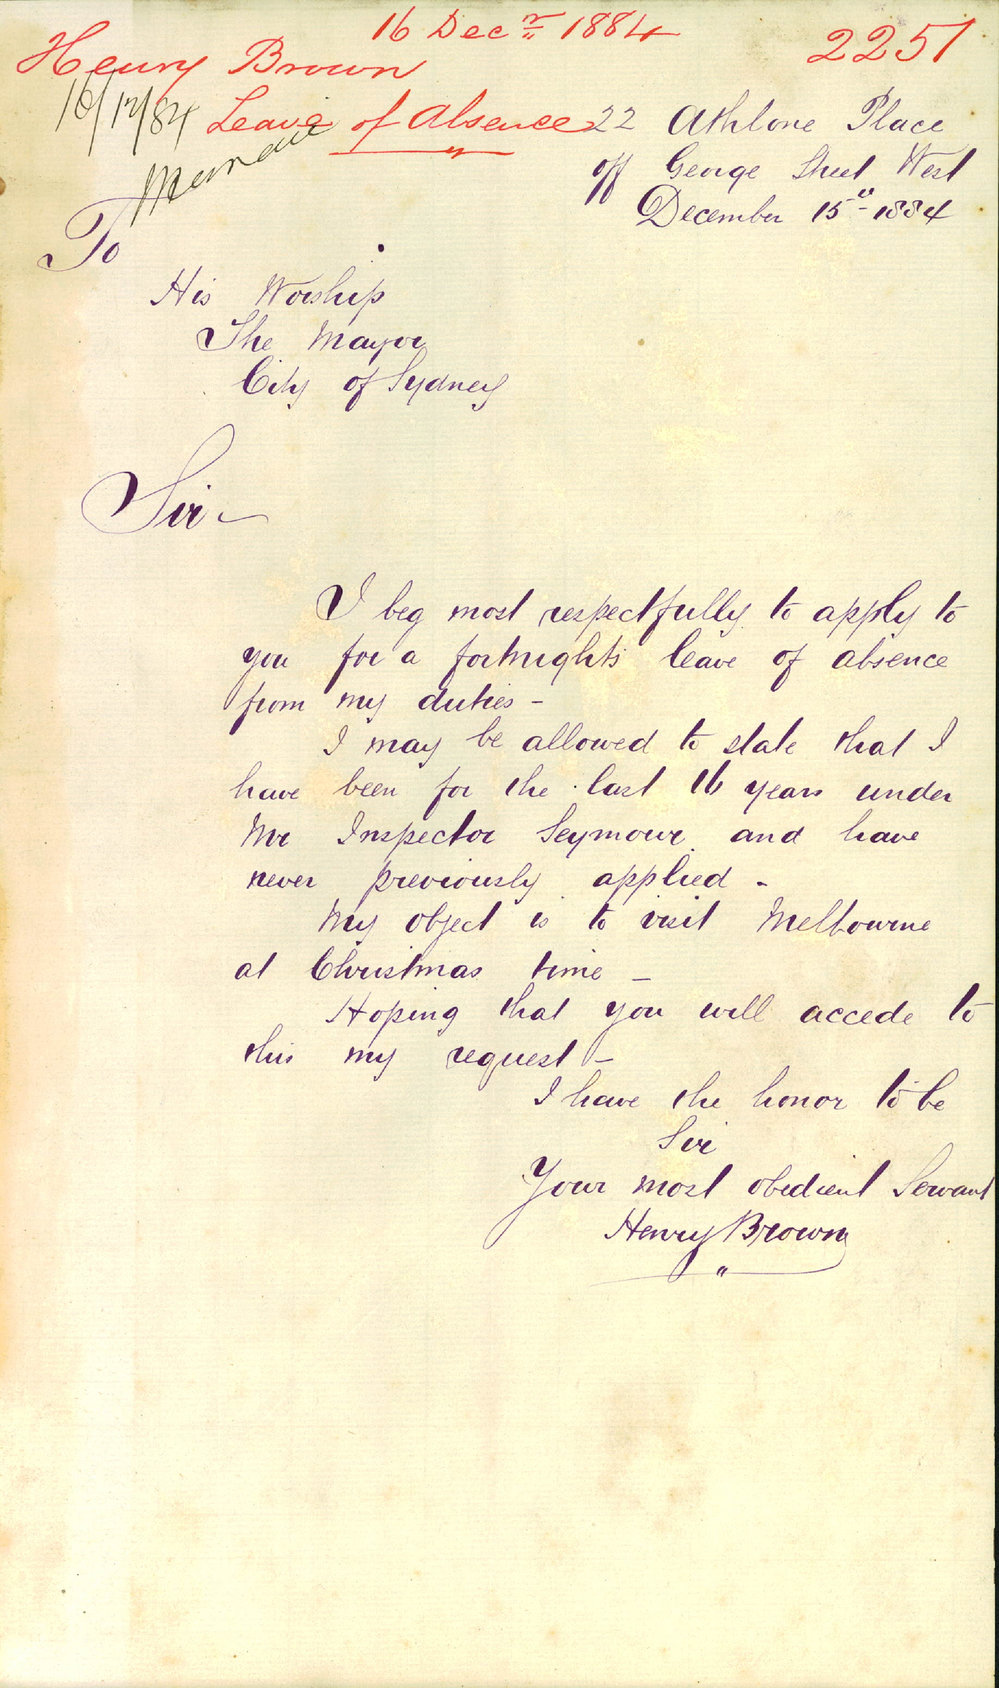 16 Decr 1884
2251
Henry Brown
16/12/84
Leave of Absence
22 Athlone Place
off George Street West
December 15th 1884
To
His Worship
The Mayor
City of Sydney
Sir -
I beg most respectfully to apply to
you for a fortnights leave of absence
from my duties -
I may be allowed to state that I
have been for the last 16 years under
Mr Inspector Seymour and have
never previously applied -
My object is to visit Melbourne
at Christmas time -
Hoping that you will accede to
this my request -
I have the honor to be
Sir
Your most obedient Servant
Henry Brown